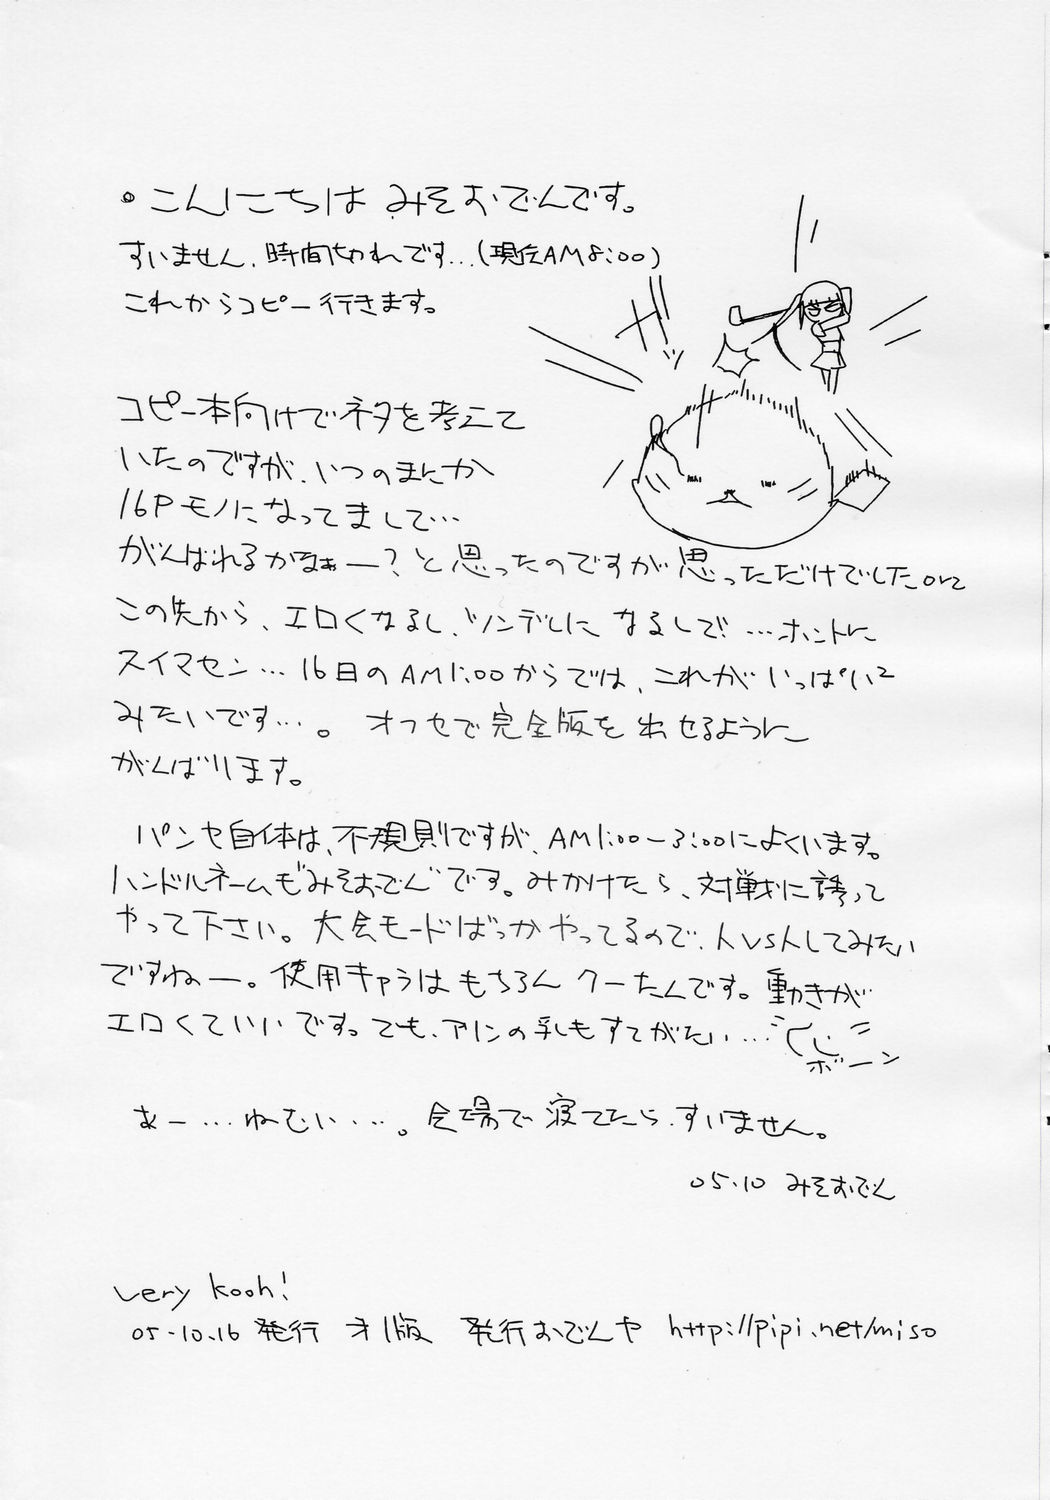 ・こんにちは みそおでんです。
すいません、時間切れです…(現在AM8:00)
これからコピー行きます。
コピー本向けでネタを考えて
いたのですが、いつのまにか
16Pモノになってまして…
がんばれるかなぁー?と思ったのですが思っただけでしたorz
この先から、エロくなるし、ツンデレになるしで!…ホントに
スイマセン…16日のAM1:00からでは、これがいっぱい²
みたいです…。 オフセで完全版を出せるように
がんばります。
パンヤ自体は、不規則ですが、AM1:00-3:00によくいます。
ハンドルネームも"みそおでん"です。みかけたら、対戦に誘って
やって下さい。大会モードばっかやってるので、人vs人してみたい
ですねー。使用キャラはもちろんクーたんです。動きが
エロくていいです。でも、アリンの乳もすてがたい…
ボーン
あー…ねむい…。会場で寝てたら、すいません。
05.10 みそおでん
very kooh!
05.10.16 発行 オレ版 発行おでんや http://pipi.net/miso